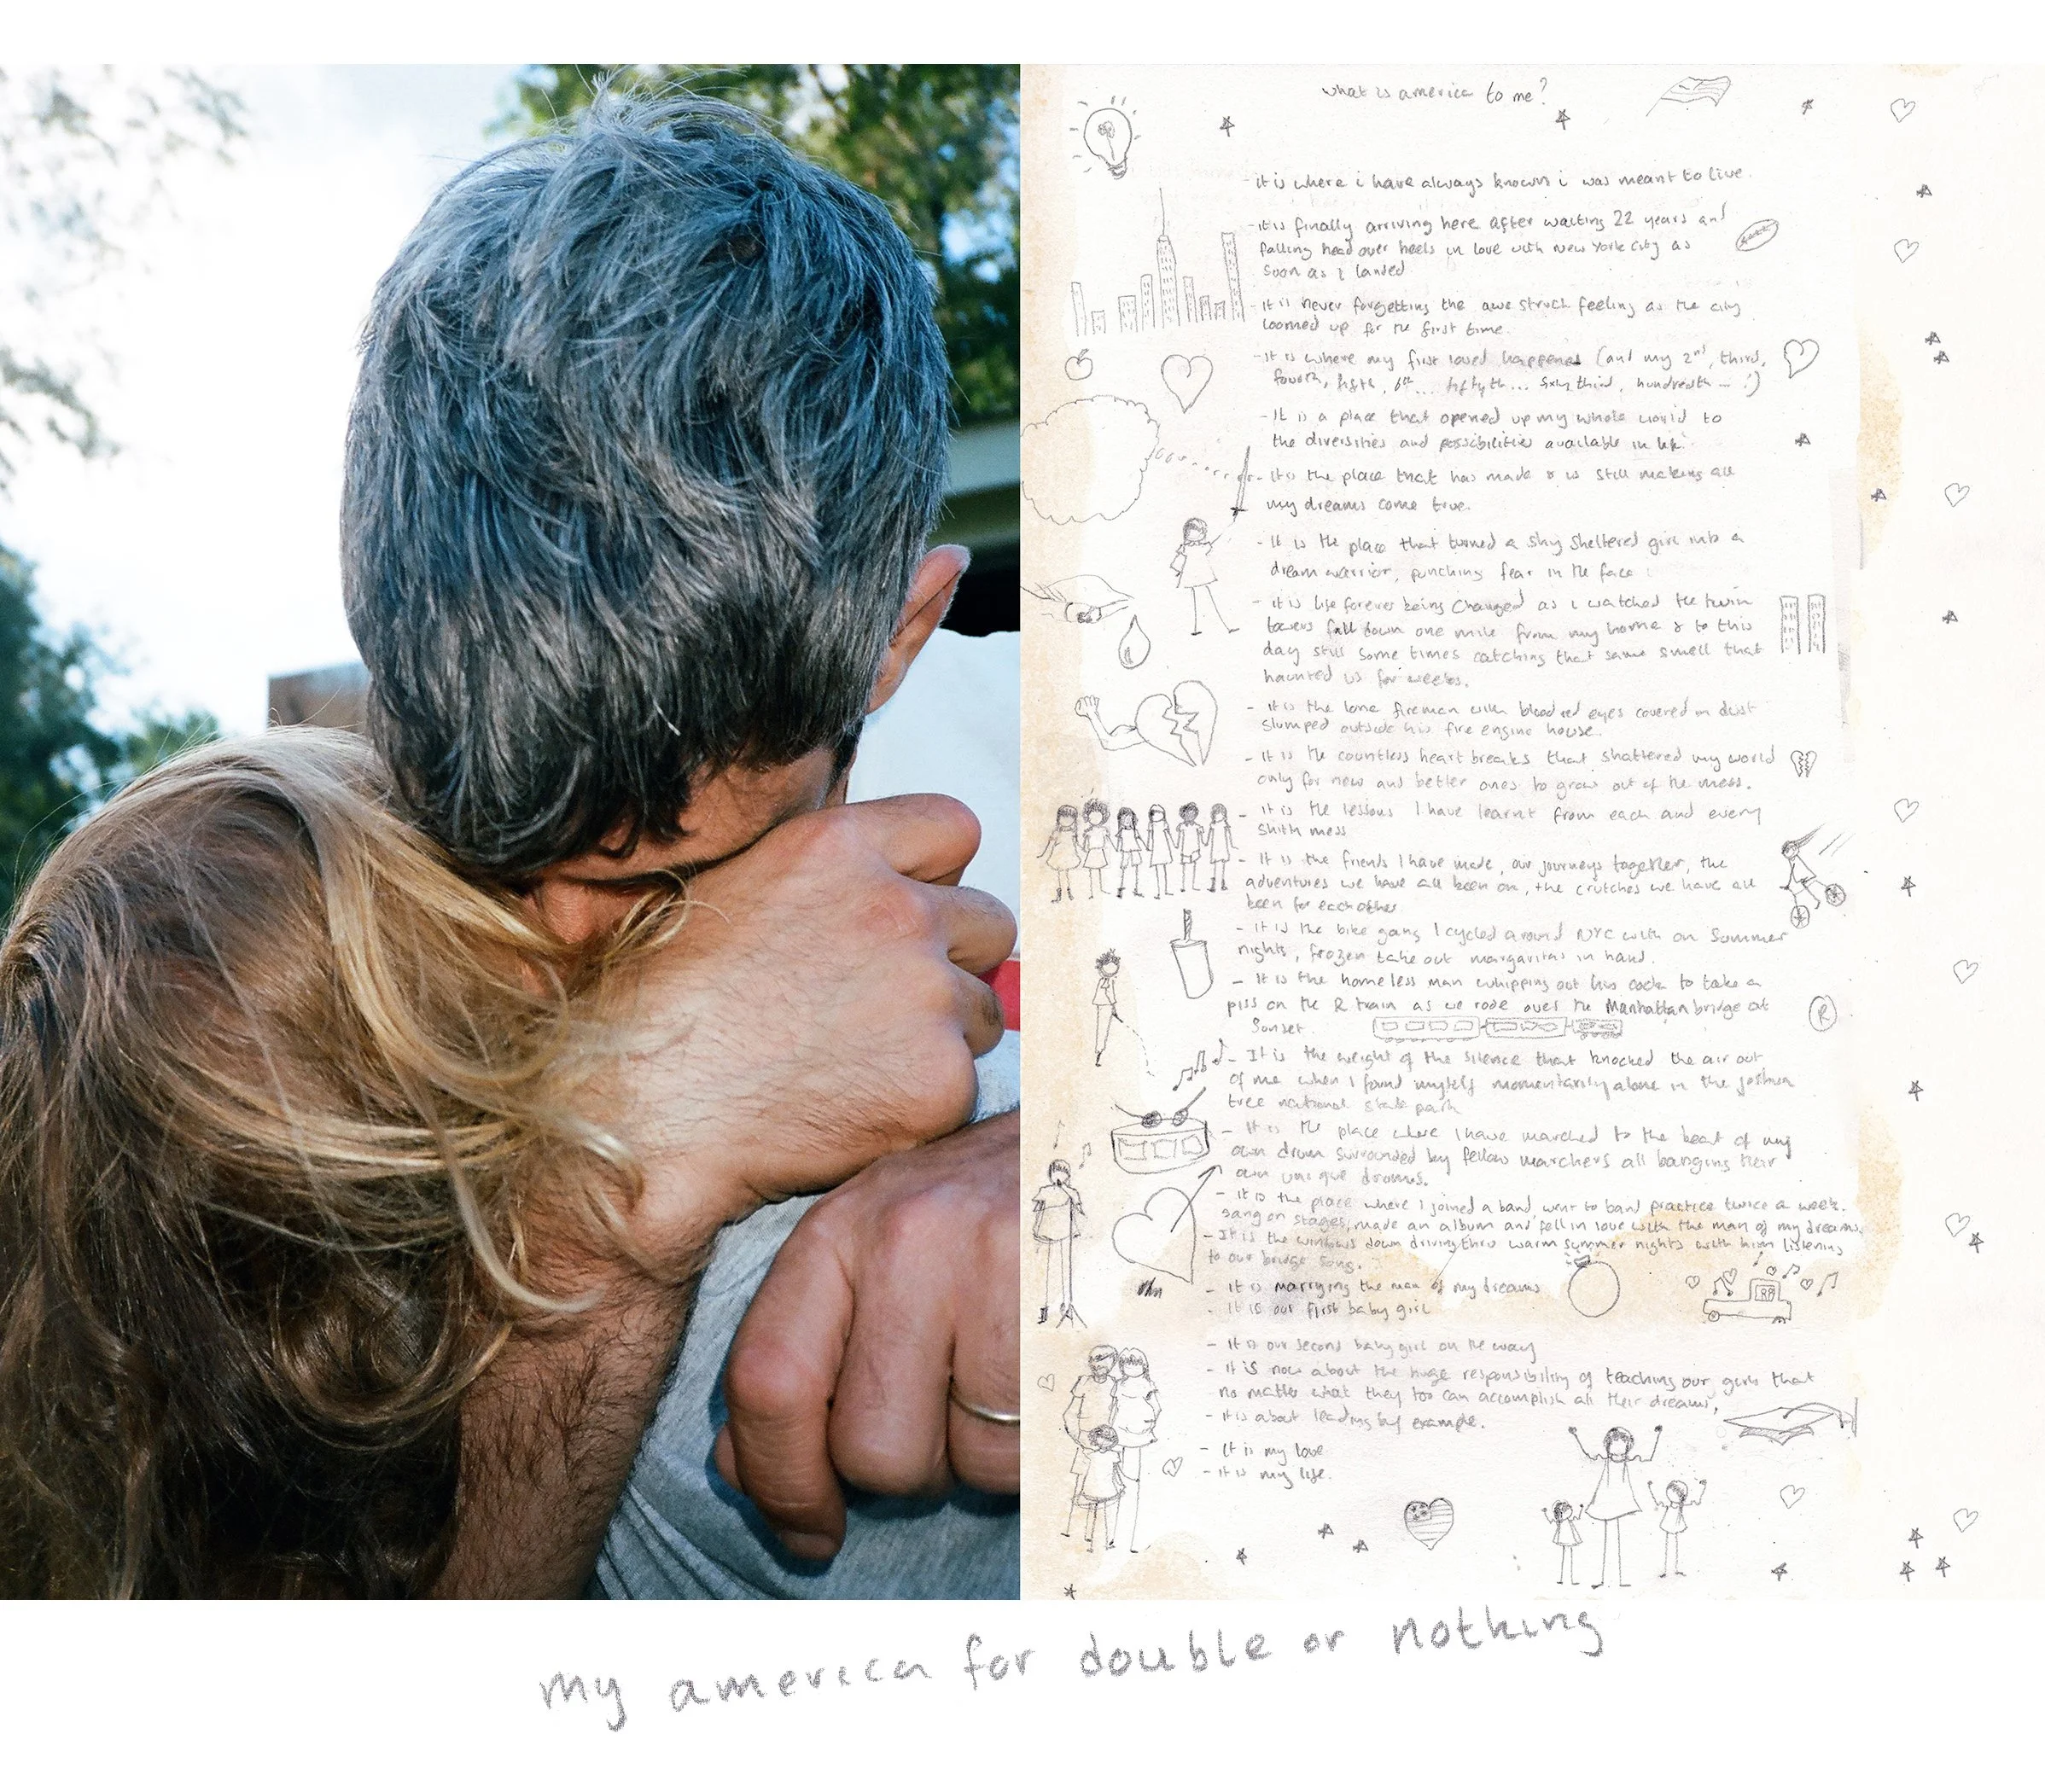 what is america to me?
- it is where i have always known i was meant to live.
- it is finally arriving here after waiting 22 years and
falling head over heels in love with new york city as
soon as i landed
- it is never forgetting the awe struck feeling as the city
loomed up for the first time.
- it is where my first loved happened (and my 2nd, third,
fourth, fifth, 6th... fiftyth... sixty third, hundredth... !)
- It is a place that opened up my whole world to
the diversities and possibilities available in life.
- It is the place that has made & is still making all
my dreams come true.
- It is the place that turned a shy sheltered girl into a
dream warrior, punching fear in the face
- it is life forever being changed as i watched the twin
towers fall down one mile from my home & to this
day still some times catching that same smell that
haunted us for weeks.
- it is the lone fireman with blood red eyes covered in dust
slumped outside his fire engine house.
- it is the countless heart breaks that shattered my world
only for new and better ones to grow out of the mess.
- it is the lessons I have learnt from each and every
mess
- It is the friends I have made, our journeys together, the
adventures we have all been on, the crutches we have all
been for each other
- it is the bike gang I cycled around NYC with on summer
nights, frozen take out margaritas in hand.
- It is the homeless man whipping out his cock to take a
piss on the R train as we rode over the Manhattan bridge at
Sunset.
R
- It is the weight of the silence that knocked the air out
of me when I found myself momentarily alone in the joshua
tree national state park
- It is the place where I have marched to the beat of my
own drum surrounded by fellow marchers all banging their
own unique drums.
- it is the place where I joined a band, went to band practice twice a week.
sang on stages, made an album and fell in love with the man of my dreams.
- It is the windows down driving thru warm summer nights with him listening
to our bridge song.
- it is marrying the man of my dreams
- it is our first baby girl
- it is our second baby girl on the way
- it is now about the huge responsibility of teaching our girls that
no matter what they too can accomplish all their dreams,
- it is about leading by example.
- it is my love
- it is my life.
my america for double or nothing